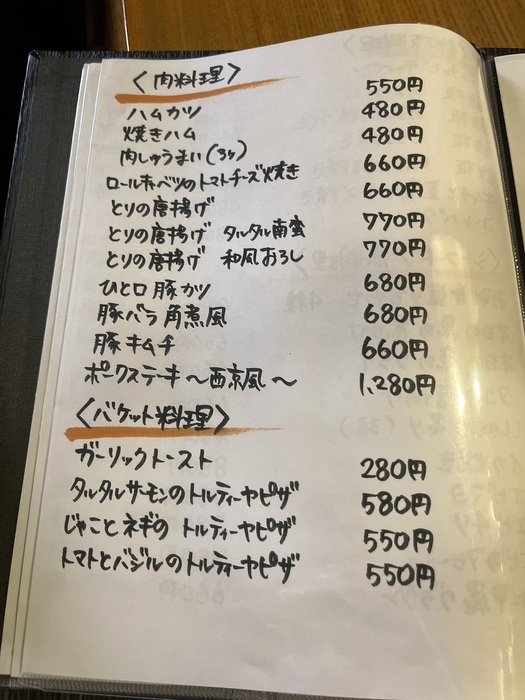 〈肉料理〉
ハムカツ 550円
焼きハム 480円
肉しゅうまい(3ヶ) 480円
ロールキャベツのトマトチーズ焼き 660円
とりの唐揚げ 660円
とりの唐揚げ タルタル南蛮 770円
とりの唐揚げ 和風おろし 770円
ひと口豚カツ 680円
豚バラ角煮風 680円
豚キムチ 660円
ポークステーキ〜西京風〜 1,280円
〈バケット料理〉
ガーリックトースト 280円
タルタルサーモンのトルティーヤピザ 580円
じゃことネギのトルティーヤピザ 550円
トマトとバジルのトルティーヤピザ 550円